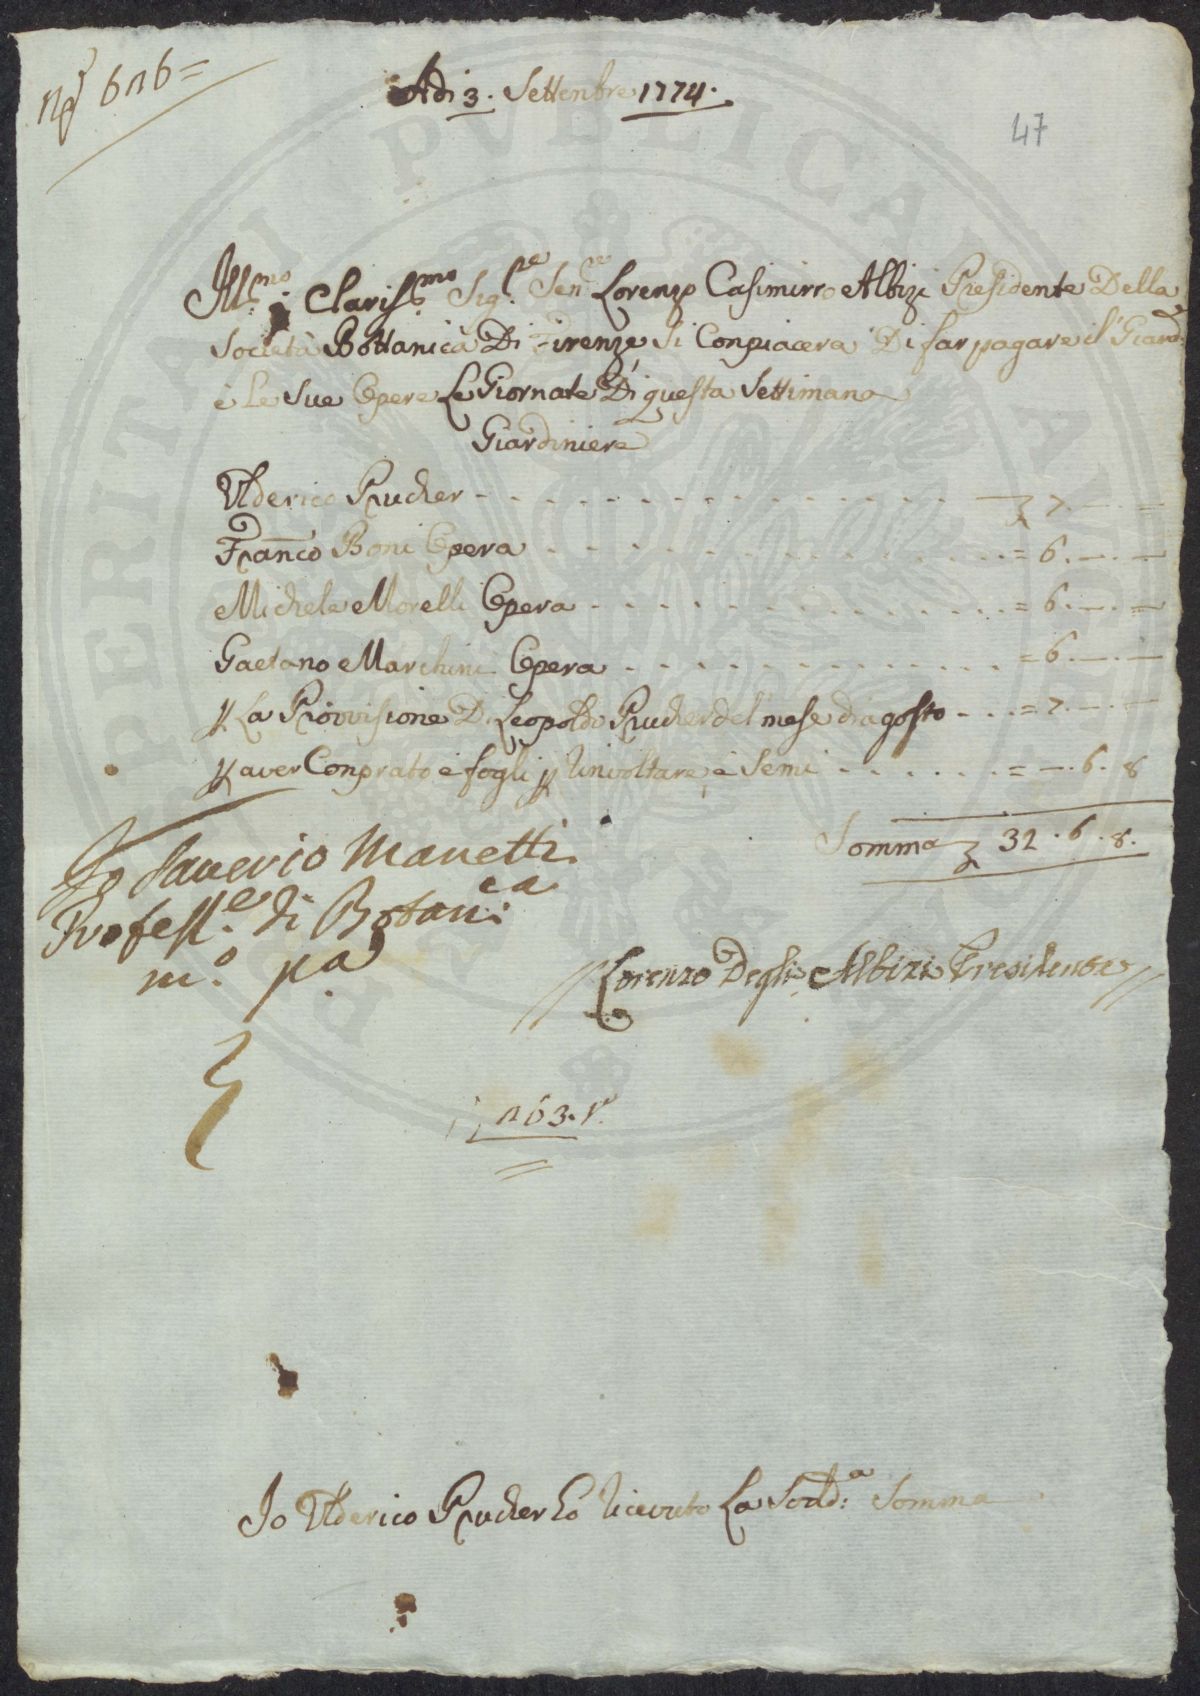 Adi 3. Settenbre 1774.
47
Ill.mo e Clariss.mo Sig.re Sen.re Lorenzo Casimirro Albizi Presidente Della
Società Bottanica Di Firenze Si Conpiacera Di far pagare il Giard.re
e Le Sue Opere Le Giornate Di questa Settimana
Giardiniere
Ulderico Prucher - - - - - - - - - 7. — . =
Fran.co Boni Opera - - - - - - - - = 6. — . —
Michele Morelli Opera - - - - - - - = 6. — . =
Gaetano Marchini Opera - - - - - - - = 6. — . —
p La Provvisione Di Leopoldo Prucher del mese di agosto - - - = 7. — . —
p aver Conprato e fogli p rinvoltare e Semi - - - - - - = — . 6. 8
Somma 32. 6. 8.
Io Saverio Manetti
Profess.e di Botani.ca
m.o p.a
Lorenzo Degli Albizi Presidente
Io Ulderico Prucher ho ricevuto La Sudd.a Somma